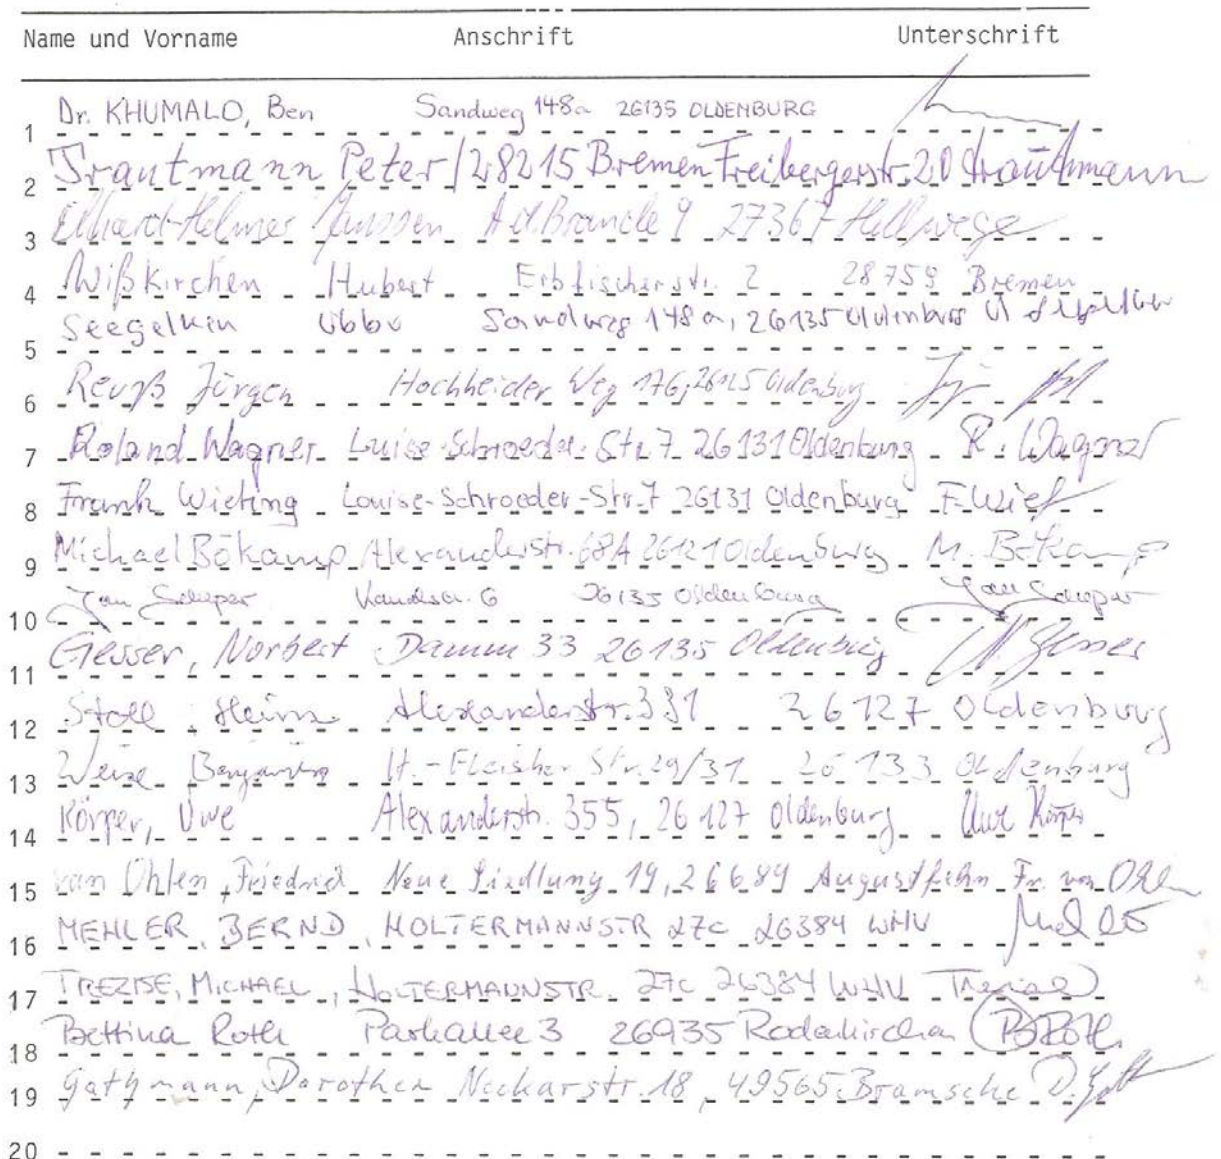 Name und Vorname Anschrift Unterschrift
1 Dr. KHUMALO, Ben Sandweg 148a 26135 OLDENBURG
2 Trautmann Peter / 28215 Bremen Freibergerstr. 20 Trautmann
3 Elhard-Helmer Janssen 9 27367 Hellwege
4 Wißkirchen Hubert Erbfischerstr. 2 28759 Bremen
5 Seegelken Ubbo Sandweg 148a, 26135 Oldenburg
6 Reuß Jürgen Hochheider Weg 176, 26125 Oldenburg
7 Roland Wagner Luise-Schroeder-Str. 7 26131 Oldenburg R. Wagner
8 Frank Wieting Louise-Schroeder-Str. 7 26131 Oldenburg F. Wiet
9 Michael Bökamp Alexanderstr. 68A 26121 Oldenburg M. Bökamp
10 Jan Scheper 6 26135 Oldenburg Jan Scheper
11 Gesser, Norbert Damm 33 26135 Oldenburg N. Gesser
12 Stoll, Heinz Alexanderstr. 331 26127 Oldenburg
13 Weise Benjamin H.-Fleisher-Str. 29/31 26133 Oldenburg
14 Körper, Uwe Alexanderstr. 355, 26127 Oldenburg Uwe Körper
15 van Ohlen, Friedrich Neue Siedlung 19, 26689 Augustfehn Fr. van Ohlen
16 MEHLER, BERND, HOLTERMANNSTR 27c 26384 WHV
17 TREZISE, MICHAEL, HOLTERMANNSTR. 27c 26384 WHV Trezise
18 Bettina Roth Parkallee 3 26935 Rodenkirchen B Roth
19 Gathmann, Dorothea Neckarstr. 18, 49565 Bramsche
20